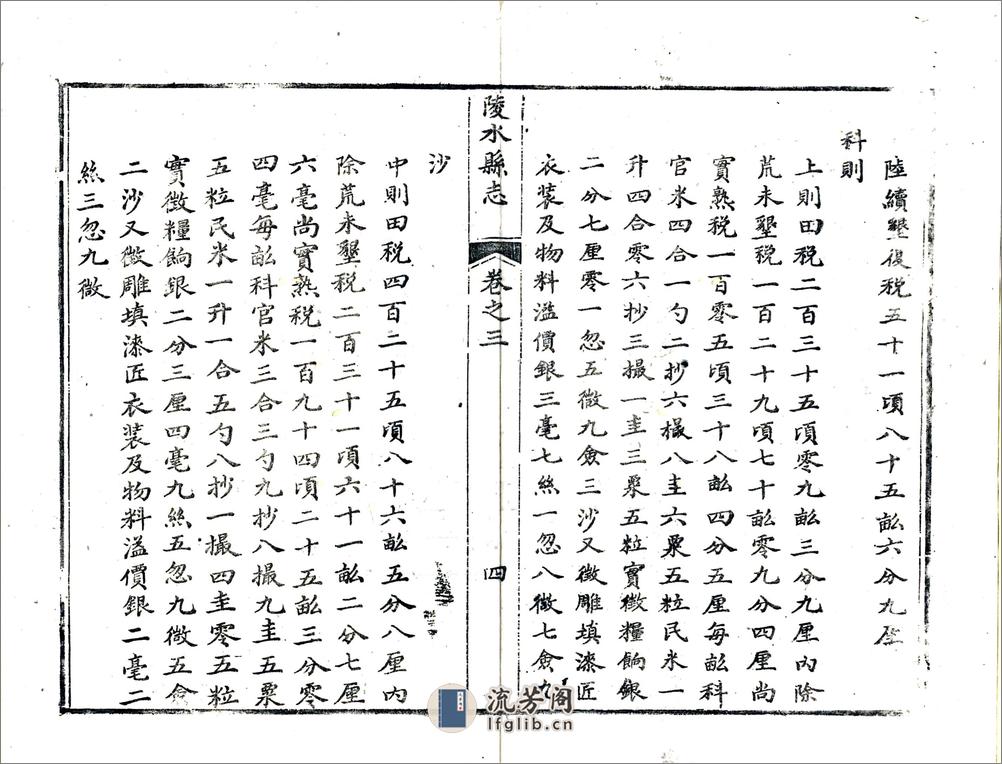 陸續墾復稅五十一頃八十五畝六分九厘
科則
上則田稅二百三十五頃零九畝三分九厘內除
荒未墾稅一百二十九頃七十畝零九分四厘尚
實熟稅一百零五頃三十八畝四分五厘每畝科
官米四合一勺二抄六撮八圭六粟五粒民米一
升四合零六抄三撮一圭三粟五粒實徵糧餉銀
二分七厘零一忽五微九僉三沙又徵雕填漆匠
衣裝及物料溢價銀三毫七絲一忽八微七僉九
陵水縣志
卷之三
四
沙
中則田稅四百二十五頃八十六畝五分八厘內
除荒未墾稅二百三十一頃六十一畝二分七厘
六毫尚實熟稅一百九十四頃二十五畝三分零
四毫每畝科官米三合三勺九抄八撮九圭五粟
五粒民米一升一合五勺八抄一撮四圭零五粒
實徵糧餉銀二分三厘四毫九絲五忽九微五僉
二沙又徵雕填漆匠衣裝及物料溢價銀二毫二
絲三忽九微
流芳阁
lfglib.cn